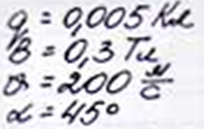 q = 0,005 Кл
B = 0,3 Тл
υ = 200 м/с
α = 45°